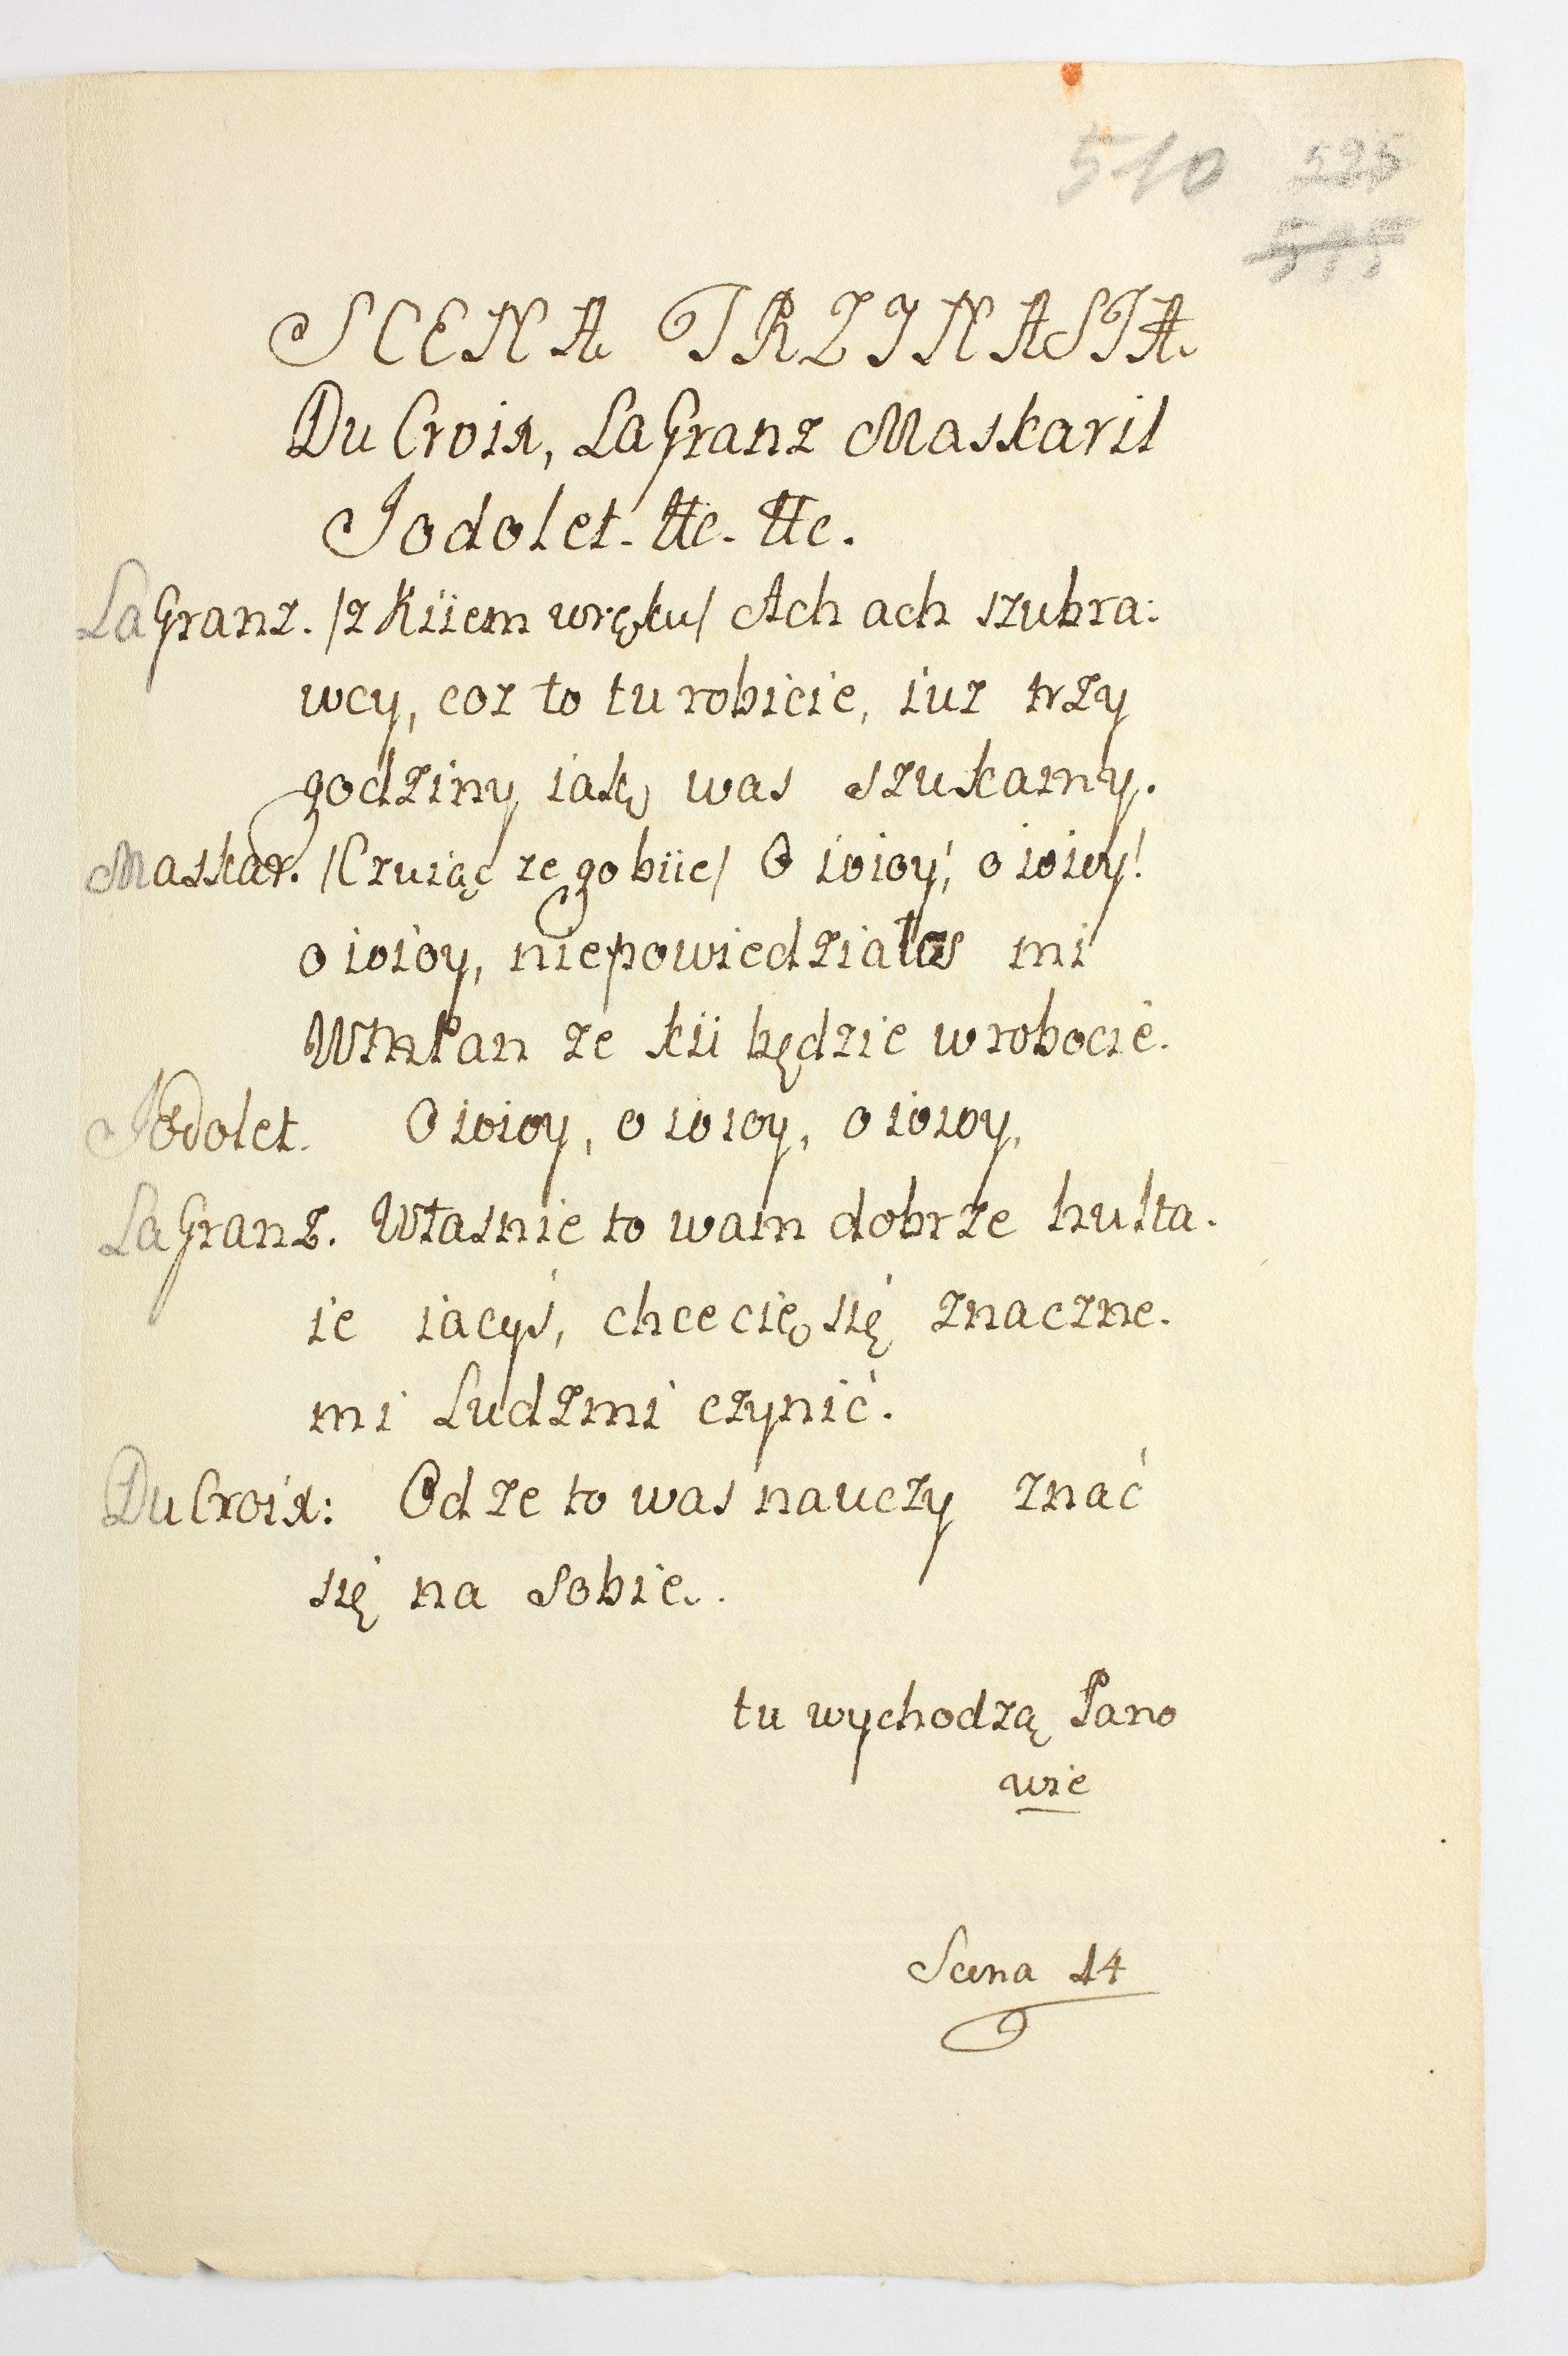 510 525
SCENA TRZINASTA
Du Croix, La Granz Maskaril
Jodolet. &c. &c.
La Granz. /z Kiiem wręku/ Ach ach szubra:
wcy, coz to tu robicie, iuz trzy
godziny iakę was szukamy.
Maskar. /Czuiąc ze go biie/ O ioioy! o ioioy!
o ioioy, niepowiedziałes mi
WMPan ze kii będzie wrobocie.
Jodolet. O ioioy, o ioioy, o ioioy,
La Granz. Własnie to wam dobrze hulta.
ie iacyś, chcecię się znaczne.
mi Ludzmi czynić.
Du Croix: Od ze to was nauczy znać
się na sobie.
tu wychodzą Pano
wie
Scena 14